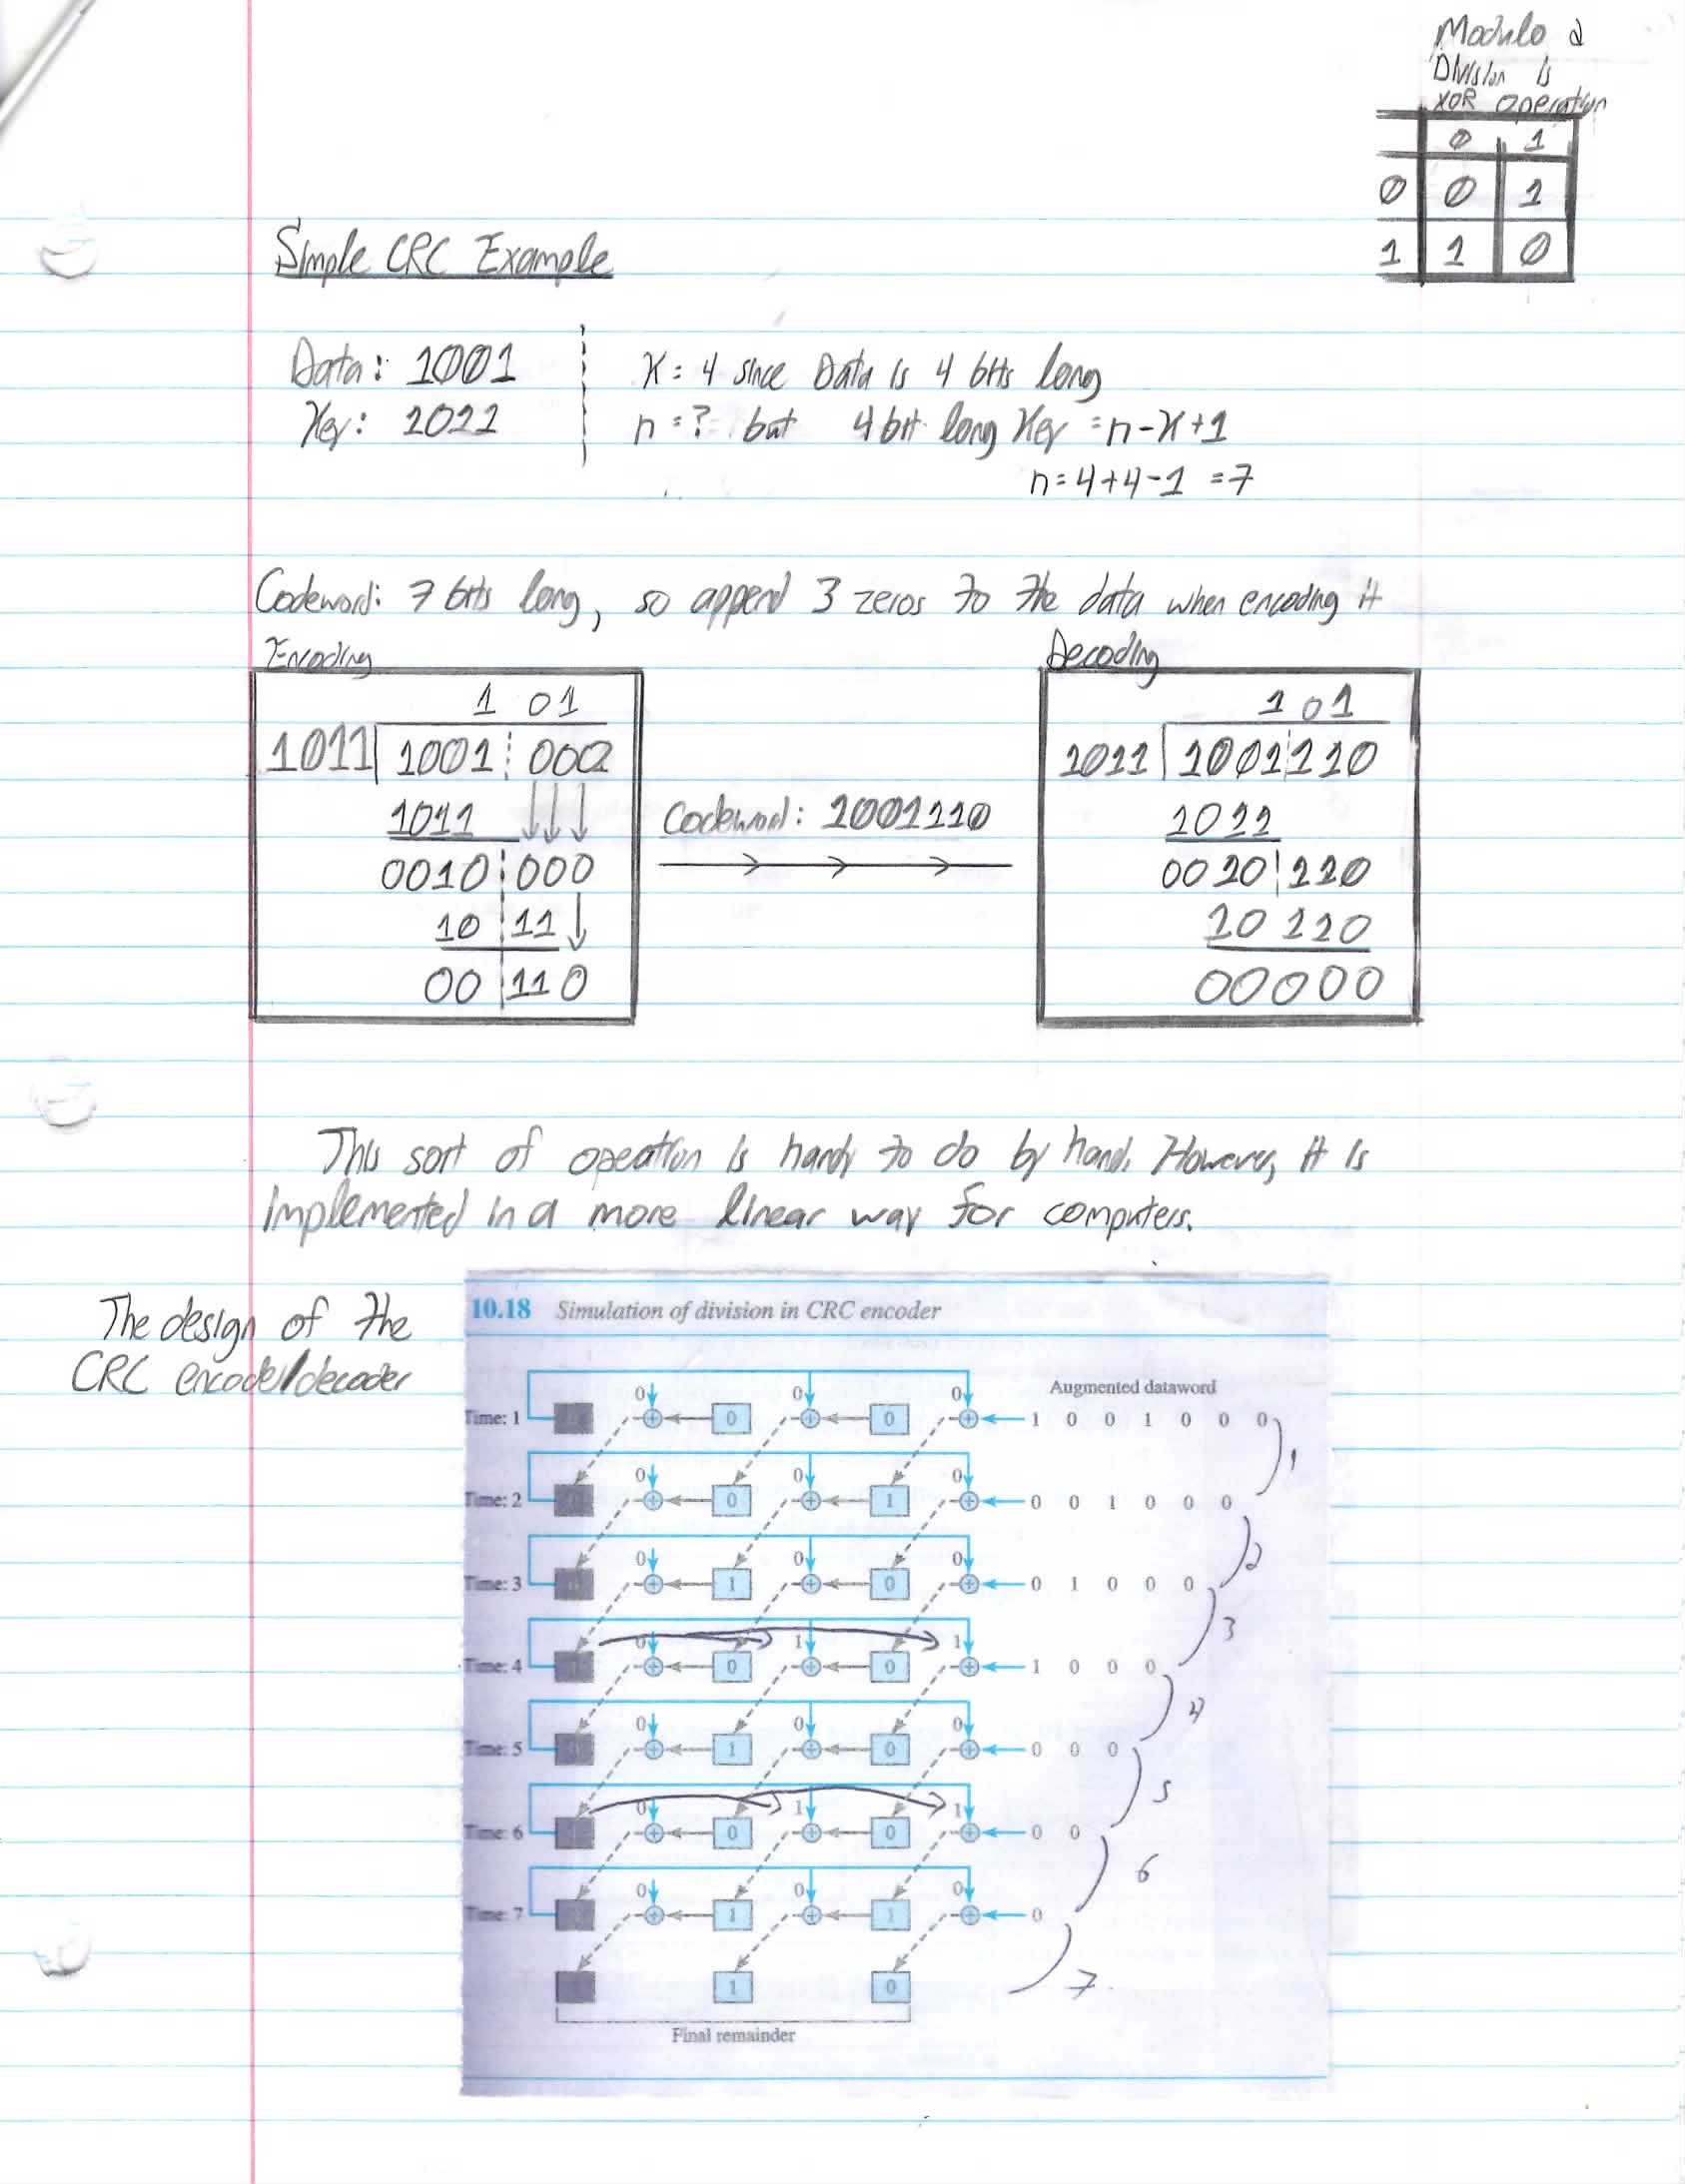 Modulo 2
Division is
XOR operation
0 1
0 0 1
1 1 0
Simple CRC Example
Data: 1001
Key: 1011
K = 4 since Data is 4 bits long
n = ? but 4 bit long Key = n-K+1
n = 4+4-1 = 7
Codeword: 7 bits long, so append 3 zeros to the data when encoding it
Encoding
1 01
1011 1001 000
1011
0010 000
10 11
00 110
Codeword: 1001110
Decoding
1 0 1
1011 1001110
1011
0010 110
10 110
00000
This sort of opeation is handy to do by hand. However, it is
implemented in a more linear way for computers.
The design of the
CRC encoder/decoder
10.18 Simulation of division in CRC encoder
Augmented dataword
0 0 0
Time: 1 0 0 1 0 0 1 0 0 0
1
0 0 0
Time: 2 0 1 0 0 1 0 0 0
2
0 0 0
Time: 3 1 0 0 1 0 0 0
3
0 1 1
Time: 4 0 0 1 0 0 0
4
0 0 0
Time: 5 1 0 0 0 0
5
0 1 1
Time: 6 0 0 0 0
6
0 0 0
Time: 7 1 1 0
7
1 0
Final remainder